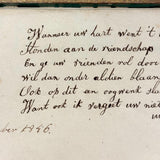 Wanneer uw hart went 't
Honden aan de vriendschap
En ge uw vrienden vol door
wil dan onder elden
Ook op dit an oogwenk
Want ook ik vergeet uw
ber 1896.